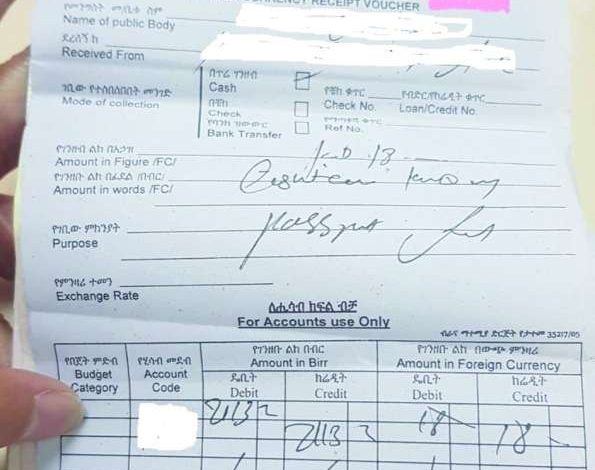 የመንግስት መ/ቤት ስም CURRENCY RECEIPT VOUCHER
Name of public Body
ደረሰኝ ከ
Received From
በጥሬ ገንዘብ
Cash
ገቢው የተሰበሰበበት መንገድ
Mode of collection
በቼክ
Check
የቼክ ቁጥር
Check No.
የብድር/የክሬዲት ቁጥር
Loan/Credit No.
የባንክ ዝውውር
Bank Transfer
Ref No.
የገንዘብ ልክ በአኃዝ
Amount in Figure /FC/ KD 18
የገንዘብ ልክ በፊደል /በብር/
Amount in words /FC/ Eighteen
የገቢው ምክንያት
Purpose Passport
የምንዛሪ ተመን
Exchange Rate
ለሒሳብ ክፍል ብቻ
For Accounts use Only
ብራና ማተሚያ ድርጅት የታተመ 35217/05
የበጀት ምድብ
Budget Category
የሂሳብ መደብ
Account Code
የገንዘቡ ልክ በብር
Amount in Birr
የገንዘቡ ልክ በውጭ ምንዛሪ
Amount in Foreign Currency
ዴቢት
Debit
ክሬዲት
Credit
ዴቢት
Debit
ክሬዲት
Credit
2113 2 18
2113 2 18